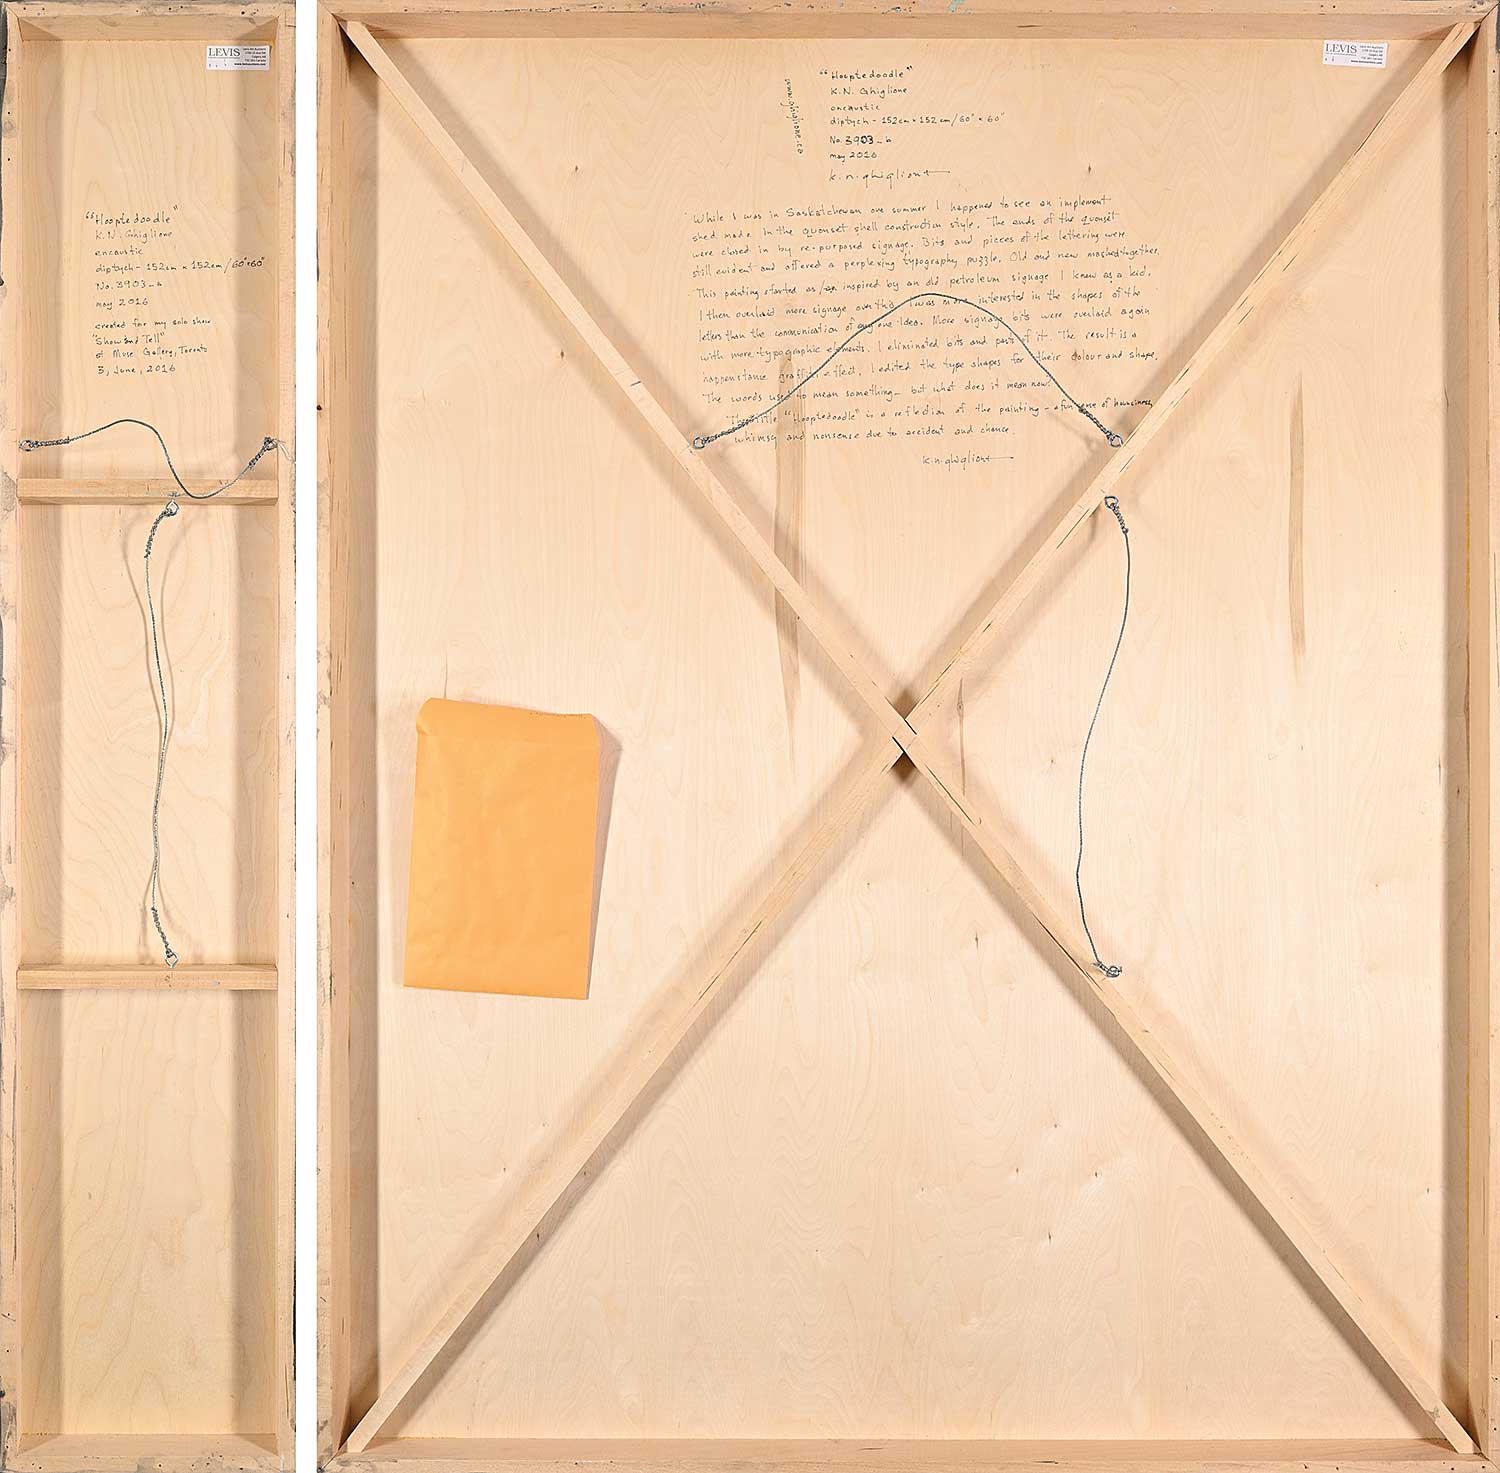 LEVIS
Levis Art Auctions
Calgary, AB
www.levisauctions.com
"Hooptedoodle"
K.N. Ghiglione
encaustic
diptych - 152cm x 152cm / 60" x 60"
No. 3903-a
may 2016
created for my solo show
"Show and Tell"
at Muse Gallery, Toronto
3, June, 2016
LEVIS
Levis Art Auctions
Calgary, AB
www.levisauctions.com
www.ghiglione.ca
"Hooptedoodle"
K.N. Ghiglione
encaustic
diptych - 152cm x 152cm / 60" x 60"
No. 3903-b
may 2016
k.n.ghiglione
While I was in Saskatchewan one summer I happened to see an implement
shed made in the quonset shell construction style. The ends of the quonset
were closed in by re-purposed signage. Bits and pieces of the lettering were
still evident and offered a perplexing typography puzzle. Old and new mashed together.
This painting started as / inspired by an old petroleum signage I knew as a kid.
I then overlaid more signage over this. I was more interested in the shapes of the
letters than the communication of any one idea. More signage bits were overlaid again
with more typographic elements. I eliminated bits and parts of it. The result is a
happenstance graffiti effect. I edited the type shapes for their colour and shape.
The words used to mean something - but what does it mean now?
The title "Hooptedoodle" is a reflection of the painting - a fun sense of
whimsy and nonsense due to accident and chance.
k.n.ghiglione